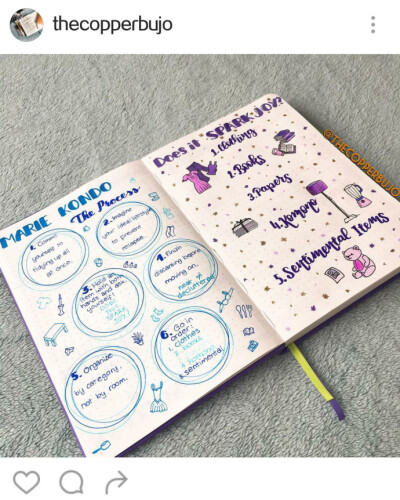 thecopperbujo
MARIE KONDO
The Process
1. Commit
yourself to
tidying up all
at once.
2. Imagine
your ideal lifestyle
to prevent
relapse.
3. Hold each
item with both
hands and ask
yourself:
DOES
THIS
SPARK
JOY?
4. Finish
discarding before
moving on.
near
decluttered
5. Organize
by category,
not by room.
6. Go in
order!
1. Clothes
2. Books
4. Komono
5. Sentimental
Does it SPARK JOY?
1. Clothing
2. Books
3. Papers
4. Komono
5. Sentimental Items
@THECOPPERBUJO